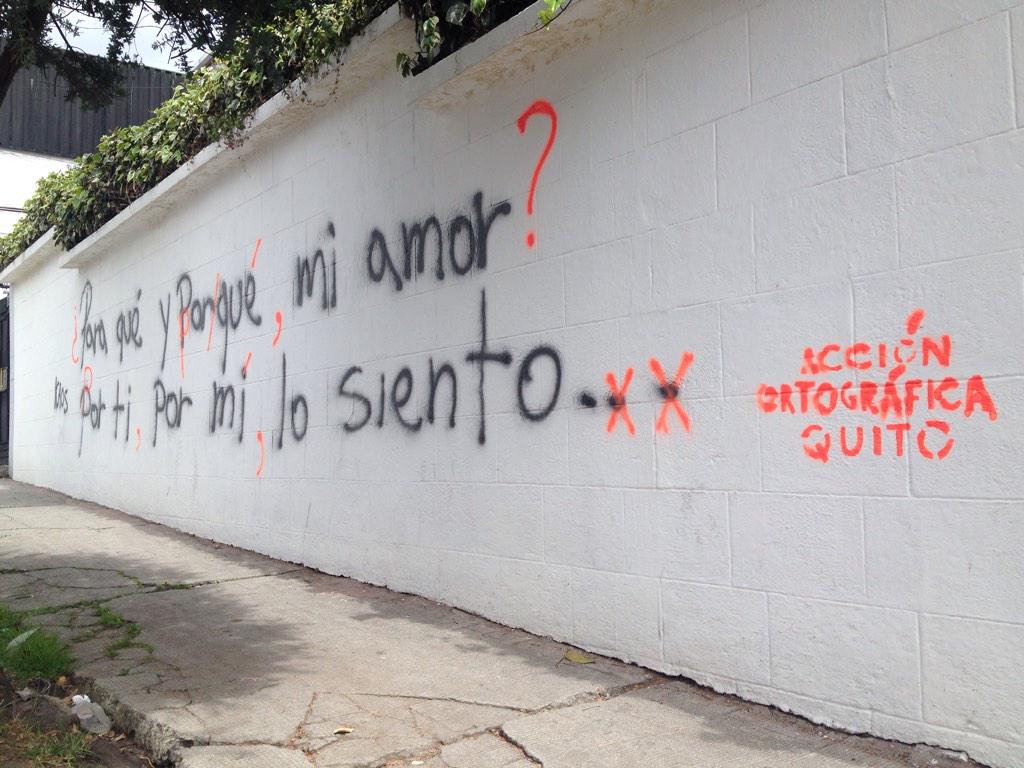 ¿Para qué y por/qué, mi amor?
Por ti, por mí, lo siento...
ACCIÓN
ORTOGRÁFICA
QUITO